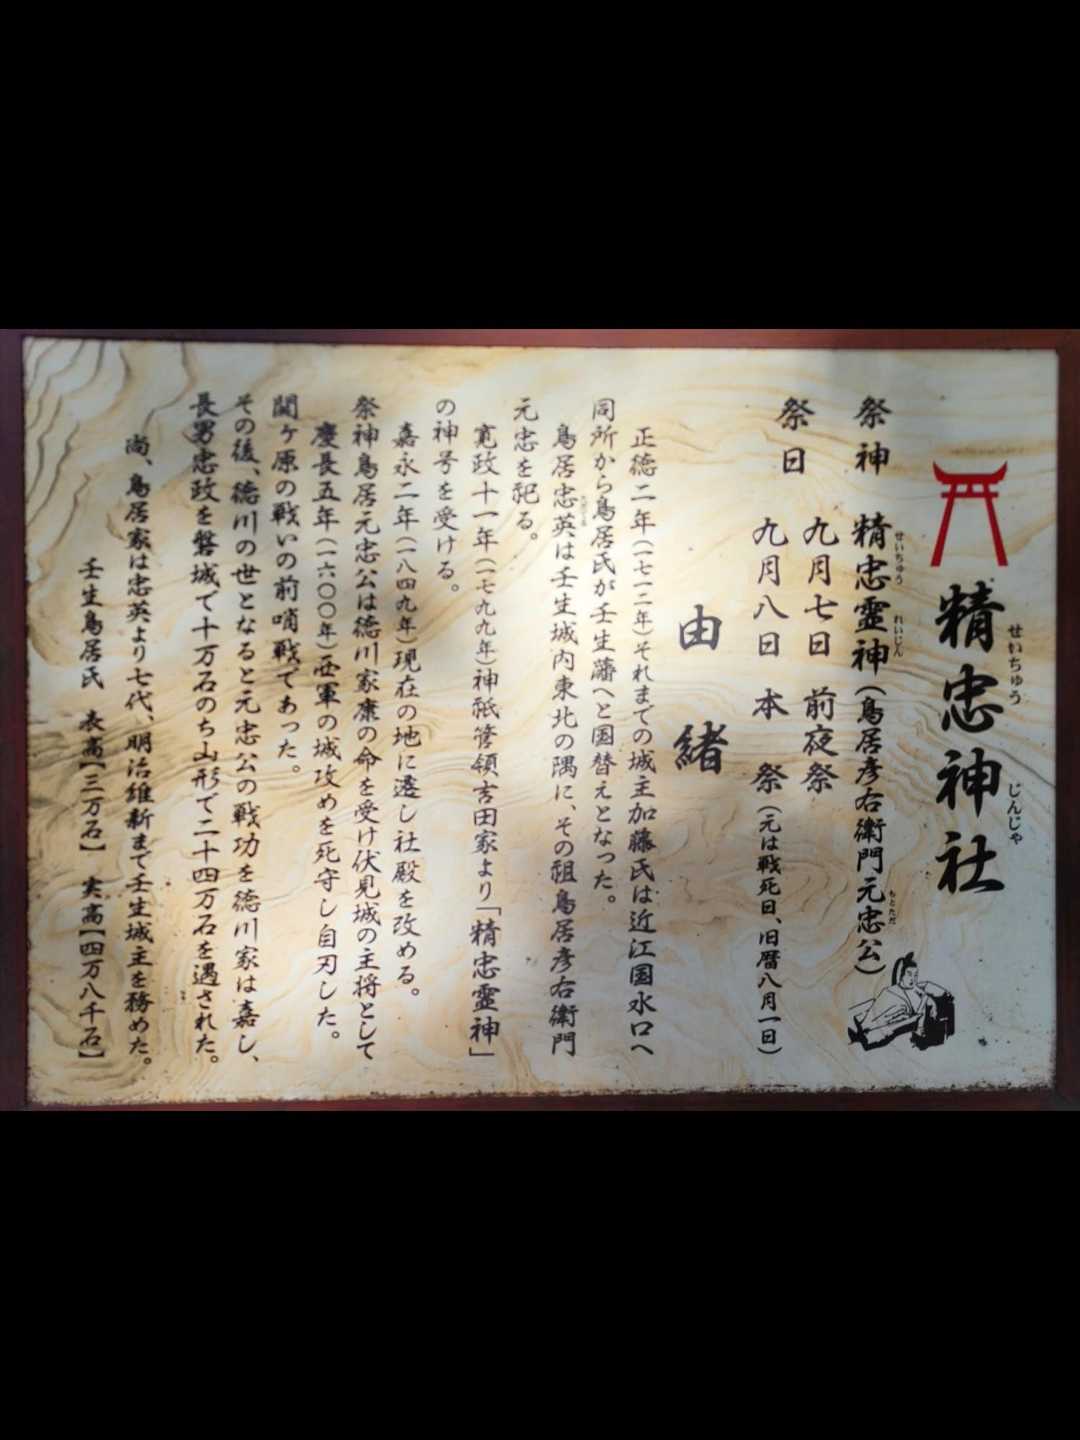 精忠神社
せいちゅう じんじゃ
祭神 精忠霊神(鳥居彦右衛門元忠公)
せいちゅう れいじん もとただ
祭日 九月七日 前夜祭
九月八日 本祭(元は戦死日、旧暦八月一日)
由緒
正徳二年(一七一二年)それまでの城主加藤氏は近江国水口へ
同所から鳥居氏が壬生藩へと国替えとなった。
鳥居忠英は壬生城内東北の隅に、その祖鳥居彦右衛門
元忠を祀る。
寛政十一年(一七九九年)神祇管領吉田家より「精忠霊神」
の神号を受ける。
嘉永二年(一八四九年)現在の地に遷し社殿を改める。
祭神鳥居元忠公は徳川家康の命を受け伏見城の主将として
慶長五年(一六〇〇年)西軍の城攻めを死守し自刃した。
関ヶ原の戦いの前哨戦であった。
その後、徳川の世となると元忠公の戦功を徳川家は嘉し、
長男忠政を磐城で十万石のち山形で二十四万石を遇された。
尚、鳥居家は忠英より七代、明治維新まで壬生城主を務めた。
壬生鳥居氏 表高【三万石】 実高【四万八千石】